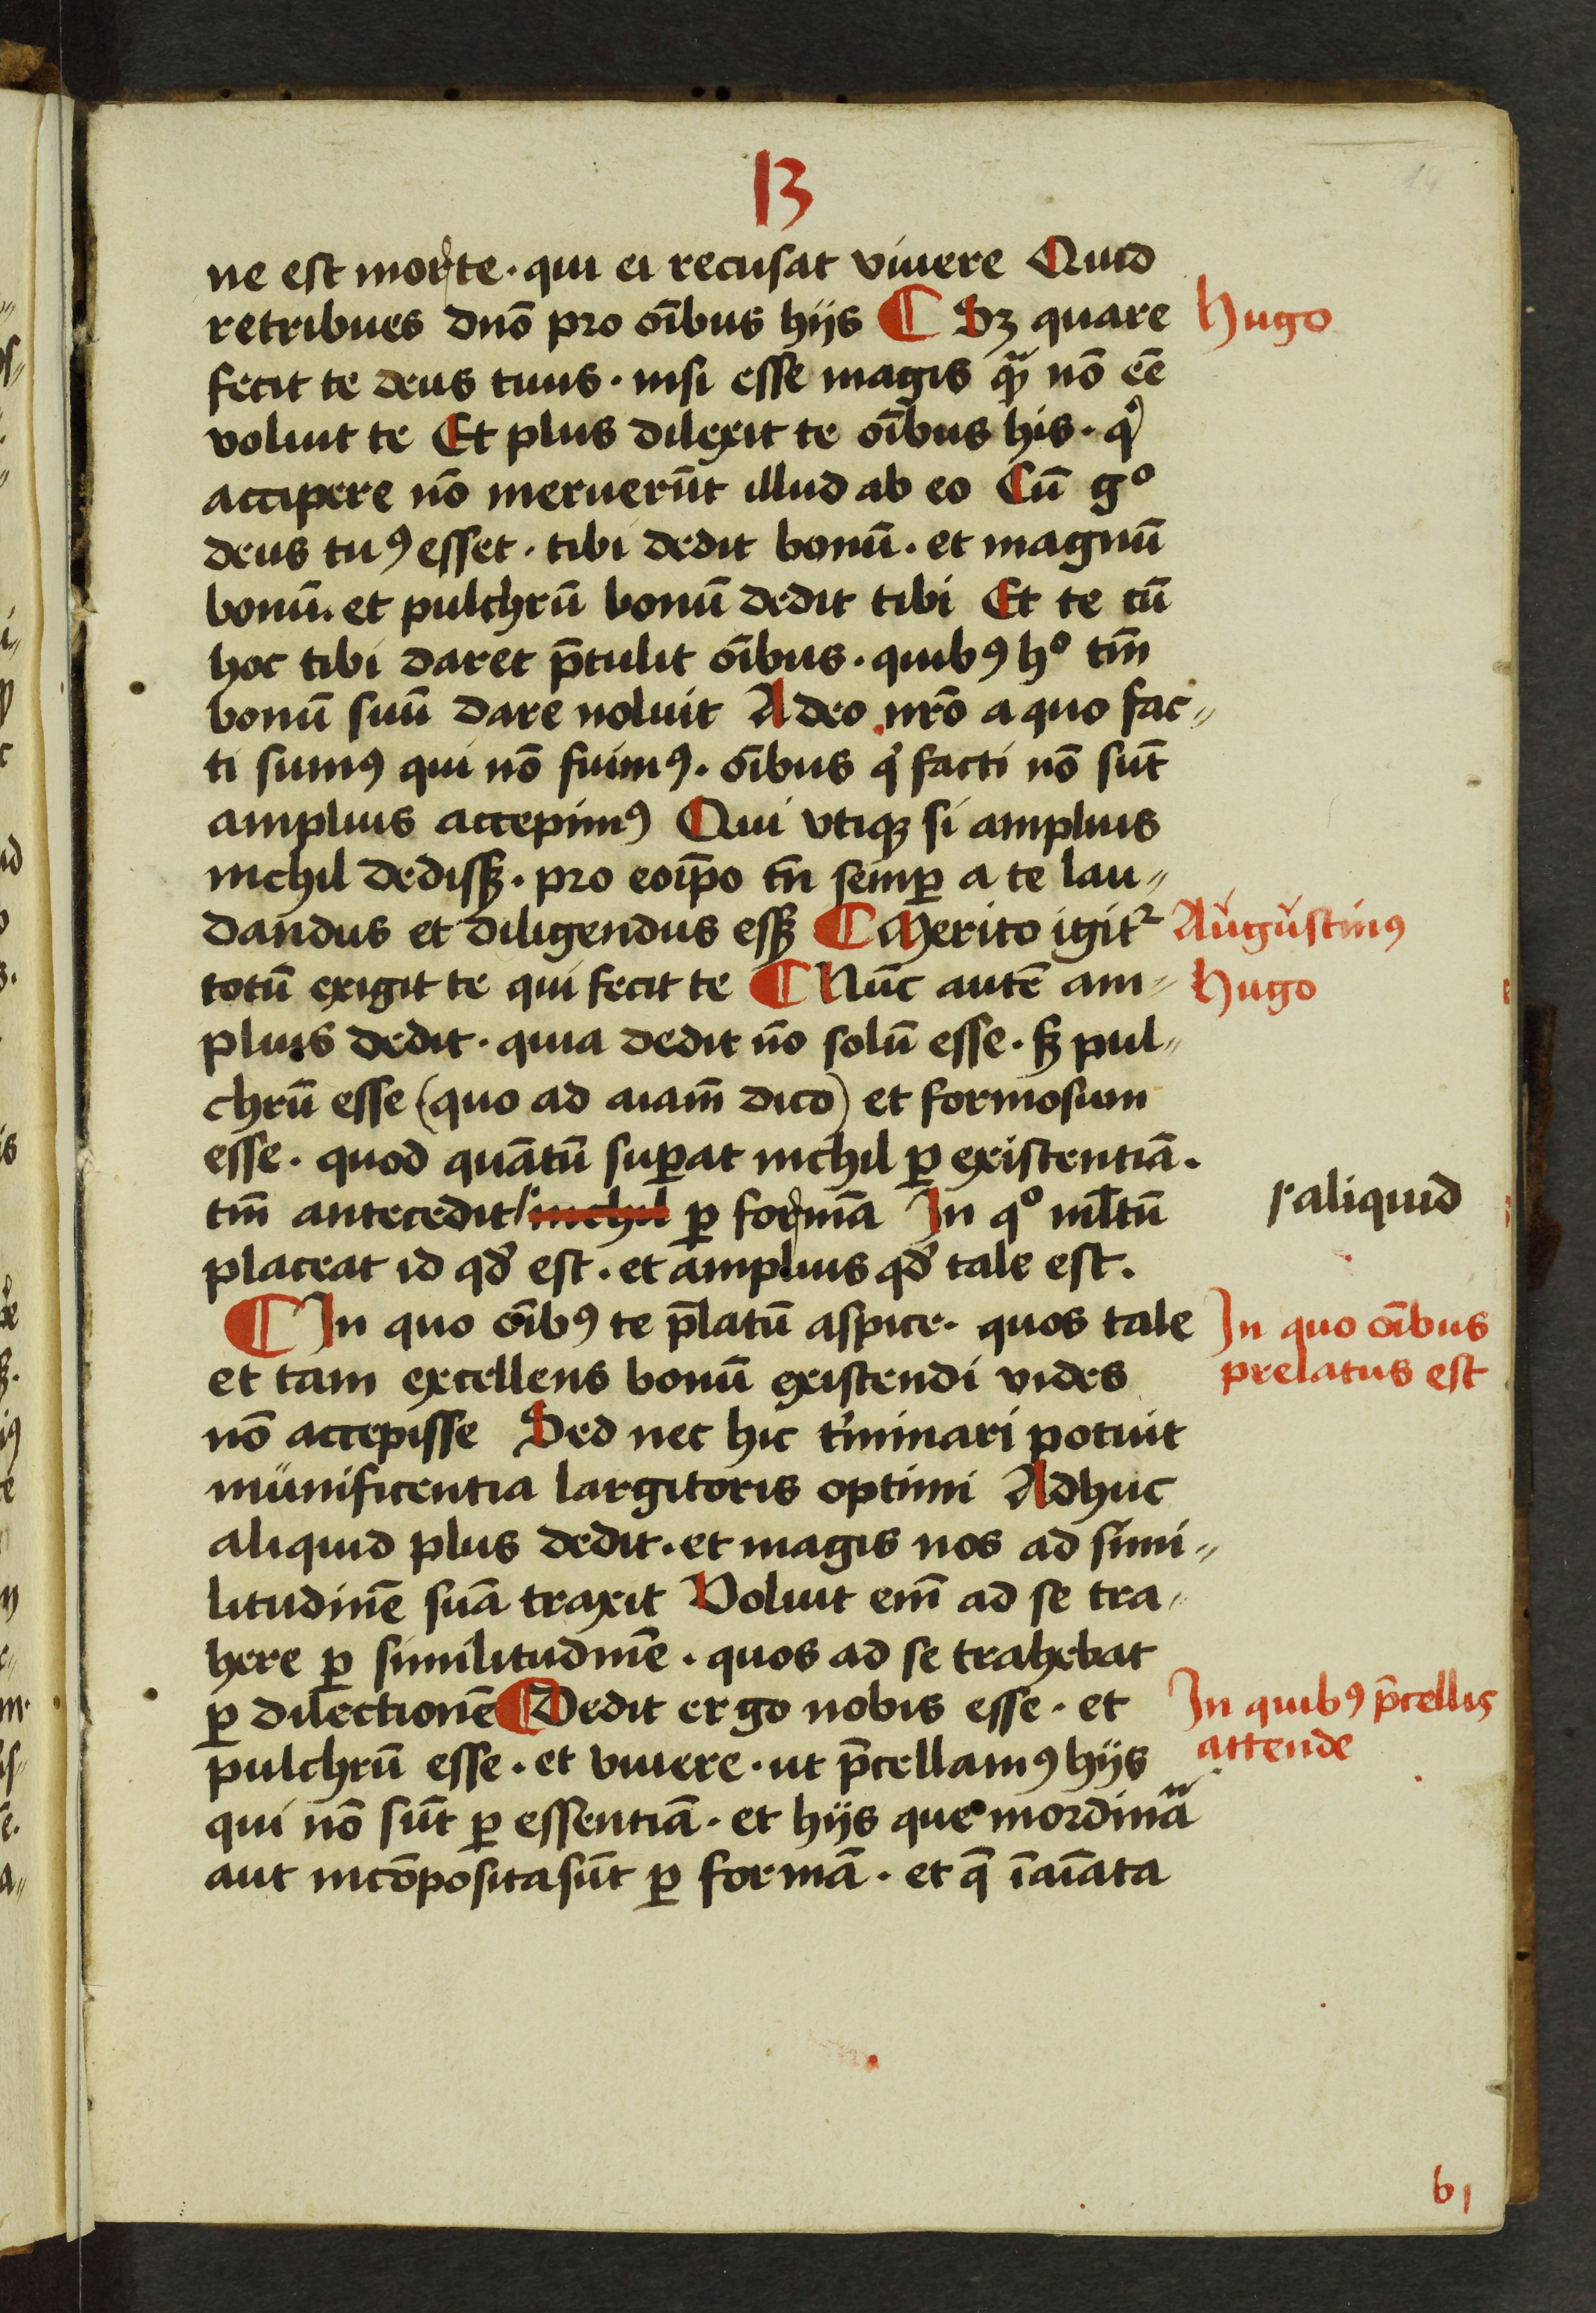 B
ne est morte · qui ei recusat viuere Quid
retribues dnō pro oı̄bus hijs ¶ Sꝫ quare
Hugo
fecit te deus tuus · nisi esse magis qͣ nō eē
voluit te Et plus dilexit te oı̄bus his · q̇
accipere nō meruerūt illud ab eo Cū gº
deus tuꝰ esset · tibi dedit bonū · et magnū
bonū · et pulchrū bonū dedit tibi Et te cū
hoc tibi daret p̄tulit oı̄bus · quibꝰ hº tm̄
bonū suū dare noluit A deo nrō a quo fac„
ti sumꝰ qui nō fuimꝰ · oı̄bus q̇ facti nō sūt
amplius accepimꝰ Qui vtiqꝫ si amplius
nichil dedissꝫ · pro eoip̄o tn̄ semꝑ a te lau„
dandus et diligendus essꝫ ¶ Merito igitᷣ
Augustinꝰ
totū exigit te qui fecit te ¶ Nūc autē am„
Hugo
plius dedit · quia dedit nō solū esse · sꝫ pul„
chrū esse (quo ad aiam̄ dico) et formosum
esse · quod quātū suꝑat nichil ꝑ existentiā ·
tm̄ antecedit nichil ꝑ formā In qº ml̄tū
aliquid
placeat id qd̄ est · et amplius qd̄ tale est ·
¶ In quo oı̄bꝰ te p̄latū aspice · quos tale
In quo oı̄bus
et tam excellens bonū existendi vides
prelatus est
nō accepisse Sed nec hic t̓minari potuit
munificentia largitoris optimi Adhuc
aliquid plus dedit · et magis nos ad simi„
litudinē suā traxit Voluit em̄ ad se tra„
here ꝑ similitudinē · quos ad se trahebat
ꝑ dilectionē ¶ Dedit ergo nobis esse · et
In quibꝰ p̄cellis
pulchrū esse · et viuere · ut p̄cellamꝰ hijs
attende
qui nō sūt ꝑ essentiā · et hijs que inordinaͣ
aut incōposita sūt ꝑ formā · et q̄ īaı̄ata
b1